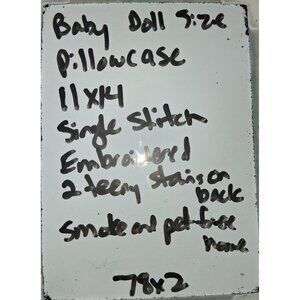 Baby Doll Size
Pillowcase
11x14
Single Stitch
Embroidered
2 teeny stains on
back
Smoke and pet-free
home
78x2